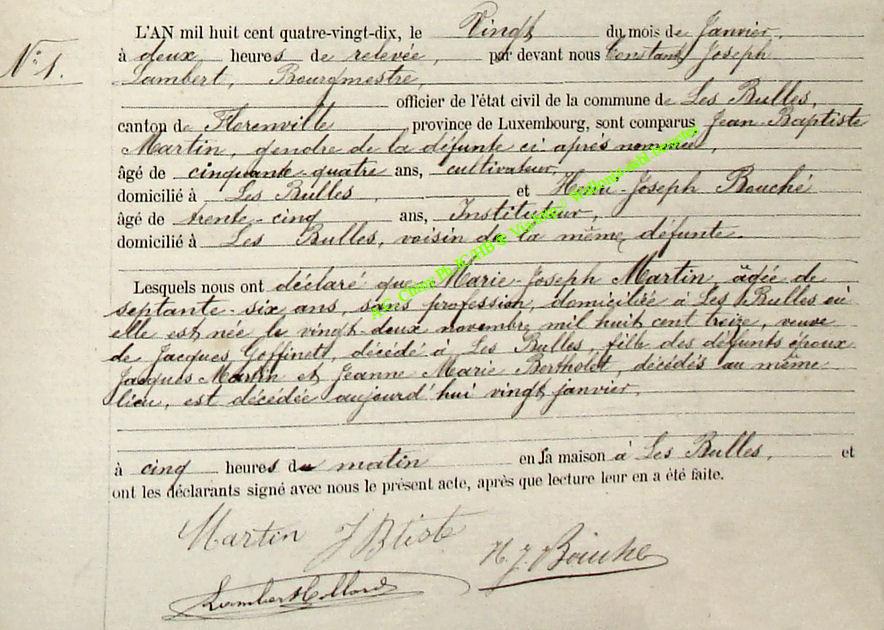 N° 1.
L'AN mil huit cent quatre-vingt-dix, le Vingt du mois de Janvier,
à deux heures de relevée, par devant nous Constant Joseph
Lambert, Bourgmestre,
officier de l'état civil de la commune de Les Bulles,
canton de Florenville, province de Luxembourg, sont comparus Jean-Baptiste
Martin, gendre de la défunte ci après nommée,
âgé de cinquante-quatre ans, cultivateur,
domicilié à Les Bulles, et Henri-Joseph Bouché
âgé de trente-cinq ans, Instituteur,
domicilié à Les Bulles, voisin de la même défunte.
Lesquels nous ont déclaré que Marie-Joseph Martin, âgée de
septante-six ans, sans profession, domiciliée à Les Bulles où
elle est née le vingt-deux novembre mil huit cent treize, veuve
de Jacques Goffinett, décédé à Les Bulles, fille des défunts époux
Jacques Martin et Jeanne Marie Bertholet, décédés au même
lieu, est décédée aujourd'hui vingt janvier,
à cinq heures du matin en sa maison à Les Bulles, et
ont les déclarants signé avec nous le présent acte, après que lecture leur en a été faite.
Martin J Btiste
H. J. Bouché